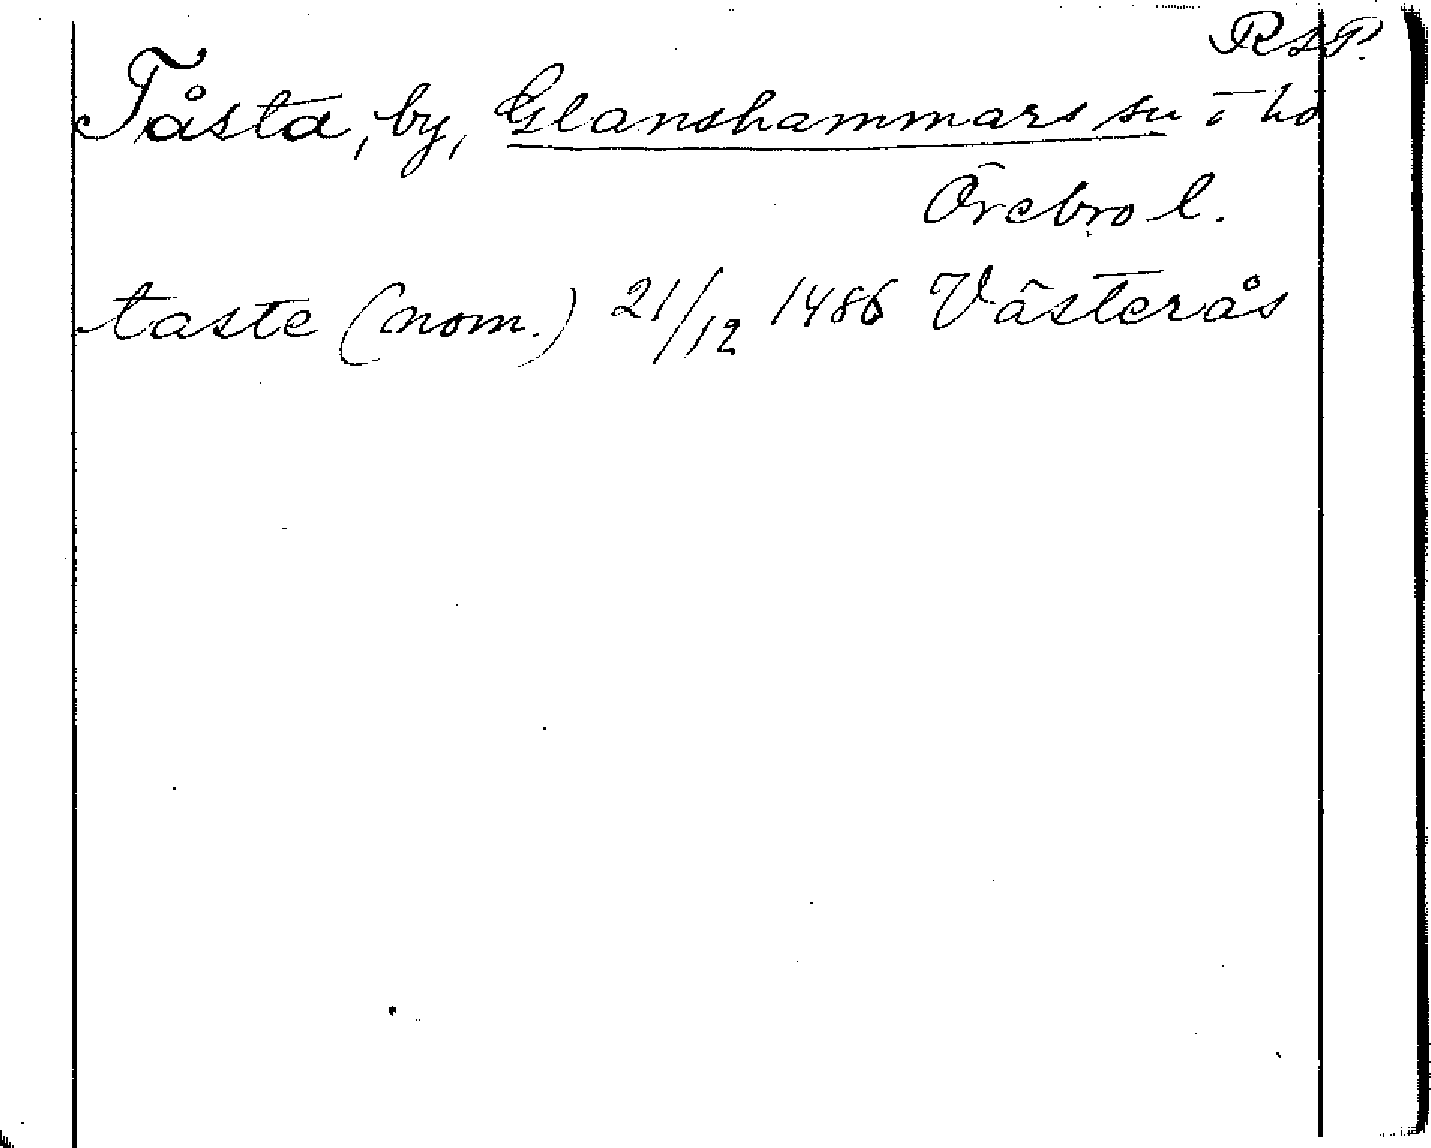 RAP.
Tåsta, by, Glanshammars sn o hd
Örebro l.
taste (nom.) 21/12 1486 Västerås